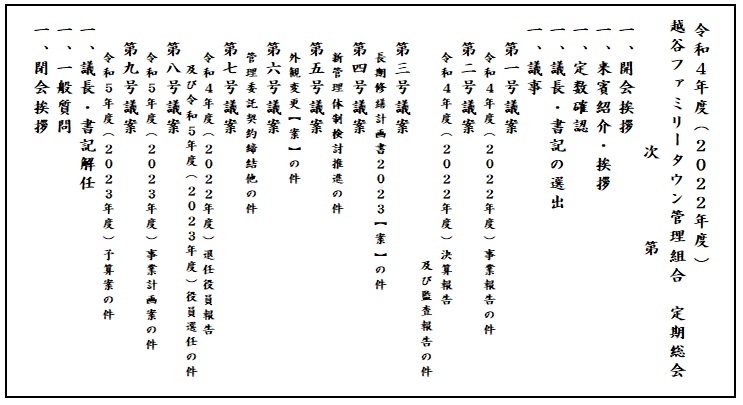 令和４年度（２０２２年度）
越谷ファミリータウン管理組合　定期総会
次　　第
一、開会挨拶
一、来賓紹介・挨拶
一、定数確認
一、議長・書記の選出
一、議事
第一号議案
令和４年度（２０２２年度）事業報告の件
第二号議案
令和４年度（２０２２年度）決算報告
及び監査報告の件
第三号議案
長期修繕計画書２０２３【案】の件
第四号議案
新管理体制検討推進の件
第五号議案
外観変更【案】の件
第六号議案
管理委託契約締結他の件
第七号議案
令和４年度（２０２２年度）退任役員報告
及び令和５年度（２０２３年度）役員選任の件
第八号議案
令和５年度（２０２３年度）事業計画案の件
第九号議案
令和５年度（２０２３年度）予算案の件
一、議長・書記解任
一、一般質問
一、閉会挨拶